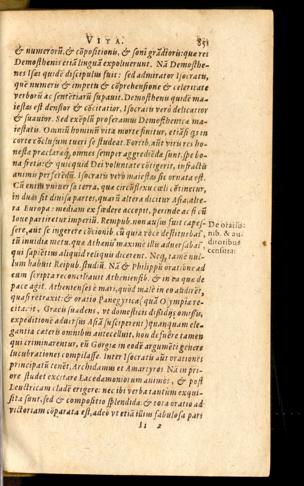 VITA. 851
& numerorũ, & cõpositionis, & soni grãdioris: quæ res
Demosthenis etiã linguã expoliuerunt. Nã Demosthe-
nes Isæi quidẽ discipulus fuit: sed admirator Isocratis,
quẽ numeris & impetu & cõprehensione & celeritate
verborũ ac sententiarũ superauit. Demosthenis quidẽ ma-
iestas est densior & cõcitatior, Isocratis verò delicatior
& suauior. Sed exẽpli proferamus Demosthenica ma-
iestatis. Omniũ hominũ vitæ morte finitur, etiãsi quis in
corte cõclusum tueri se studeat. Fortib. aut viris res ho-
nestas præclarasq́; omnes semper aggrediẽdæ sunt, spe bo-
na fretis: & quicquid Dei voluntate cõtigerit, inflictũ
animis perferẽdũ. Isocratis verò maiestas sic ornata est.
Cũ enim vniuersa terra, quæ circũfixu cæli cõtinetur,
in duas sit diuisa partes, quarũ altera dicitur Asia, alte-
ra Europa: mediam ex fœdere accepit, perinde ac si cũ
Ioue partiretur imperiũ. Rempub. non ausim suit capes-
sere,
tũ inuidia metu, quæ Atheniẽ maximè illis aduersabat,
qui sapiẽtius aliquid reliquis dicerent. Neq; tamẽ nul-
lum habuit Reipub. studiũ. Nã & Philippũ oratione ad
eum scripta reconciliauit Atheniensib. & in ea quæ de
pace agit, Athenienses è mari, quòd malè in eo audirẽt,
quasi retraxit: & oratio Panegyrica (quã Olympiæ re-
citauit, Græcis suadens, vt domesticis dissidijs omissis,
expeditionẽ aduersus Asiã susciperent) quanquam ele-
gantia cæteris omnibus antecellit,
qui criminarentur, eũ Gorgiæ in eodẽ argumẽto genere
lucubrationes compilasse. Inter Isocratis aũt orationes
principatũ tenẽt, Archidamus et Amartyros. Nã in pri-
ore studet excitare Lacedæmoniorum animos, & post
Leuctricam cladẽ erigere: nec ibi verba tantum exqui-
sita sunt, sed & compositio splendida: & tota oratio ad
victoriam cõparata est, adeò vt etiã illius fabulosa pars
De oratiõ-
nib. & au-
ditoribus
censura.
Ii 2